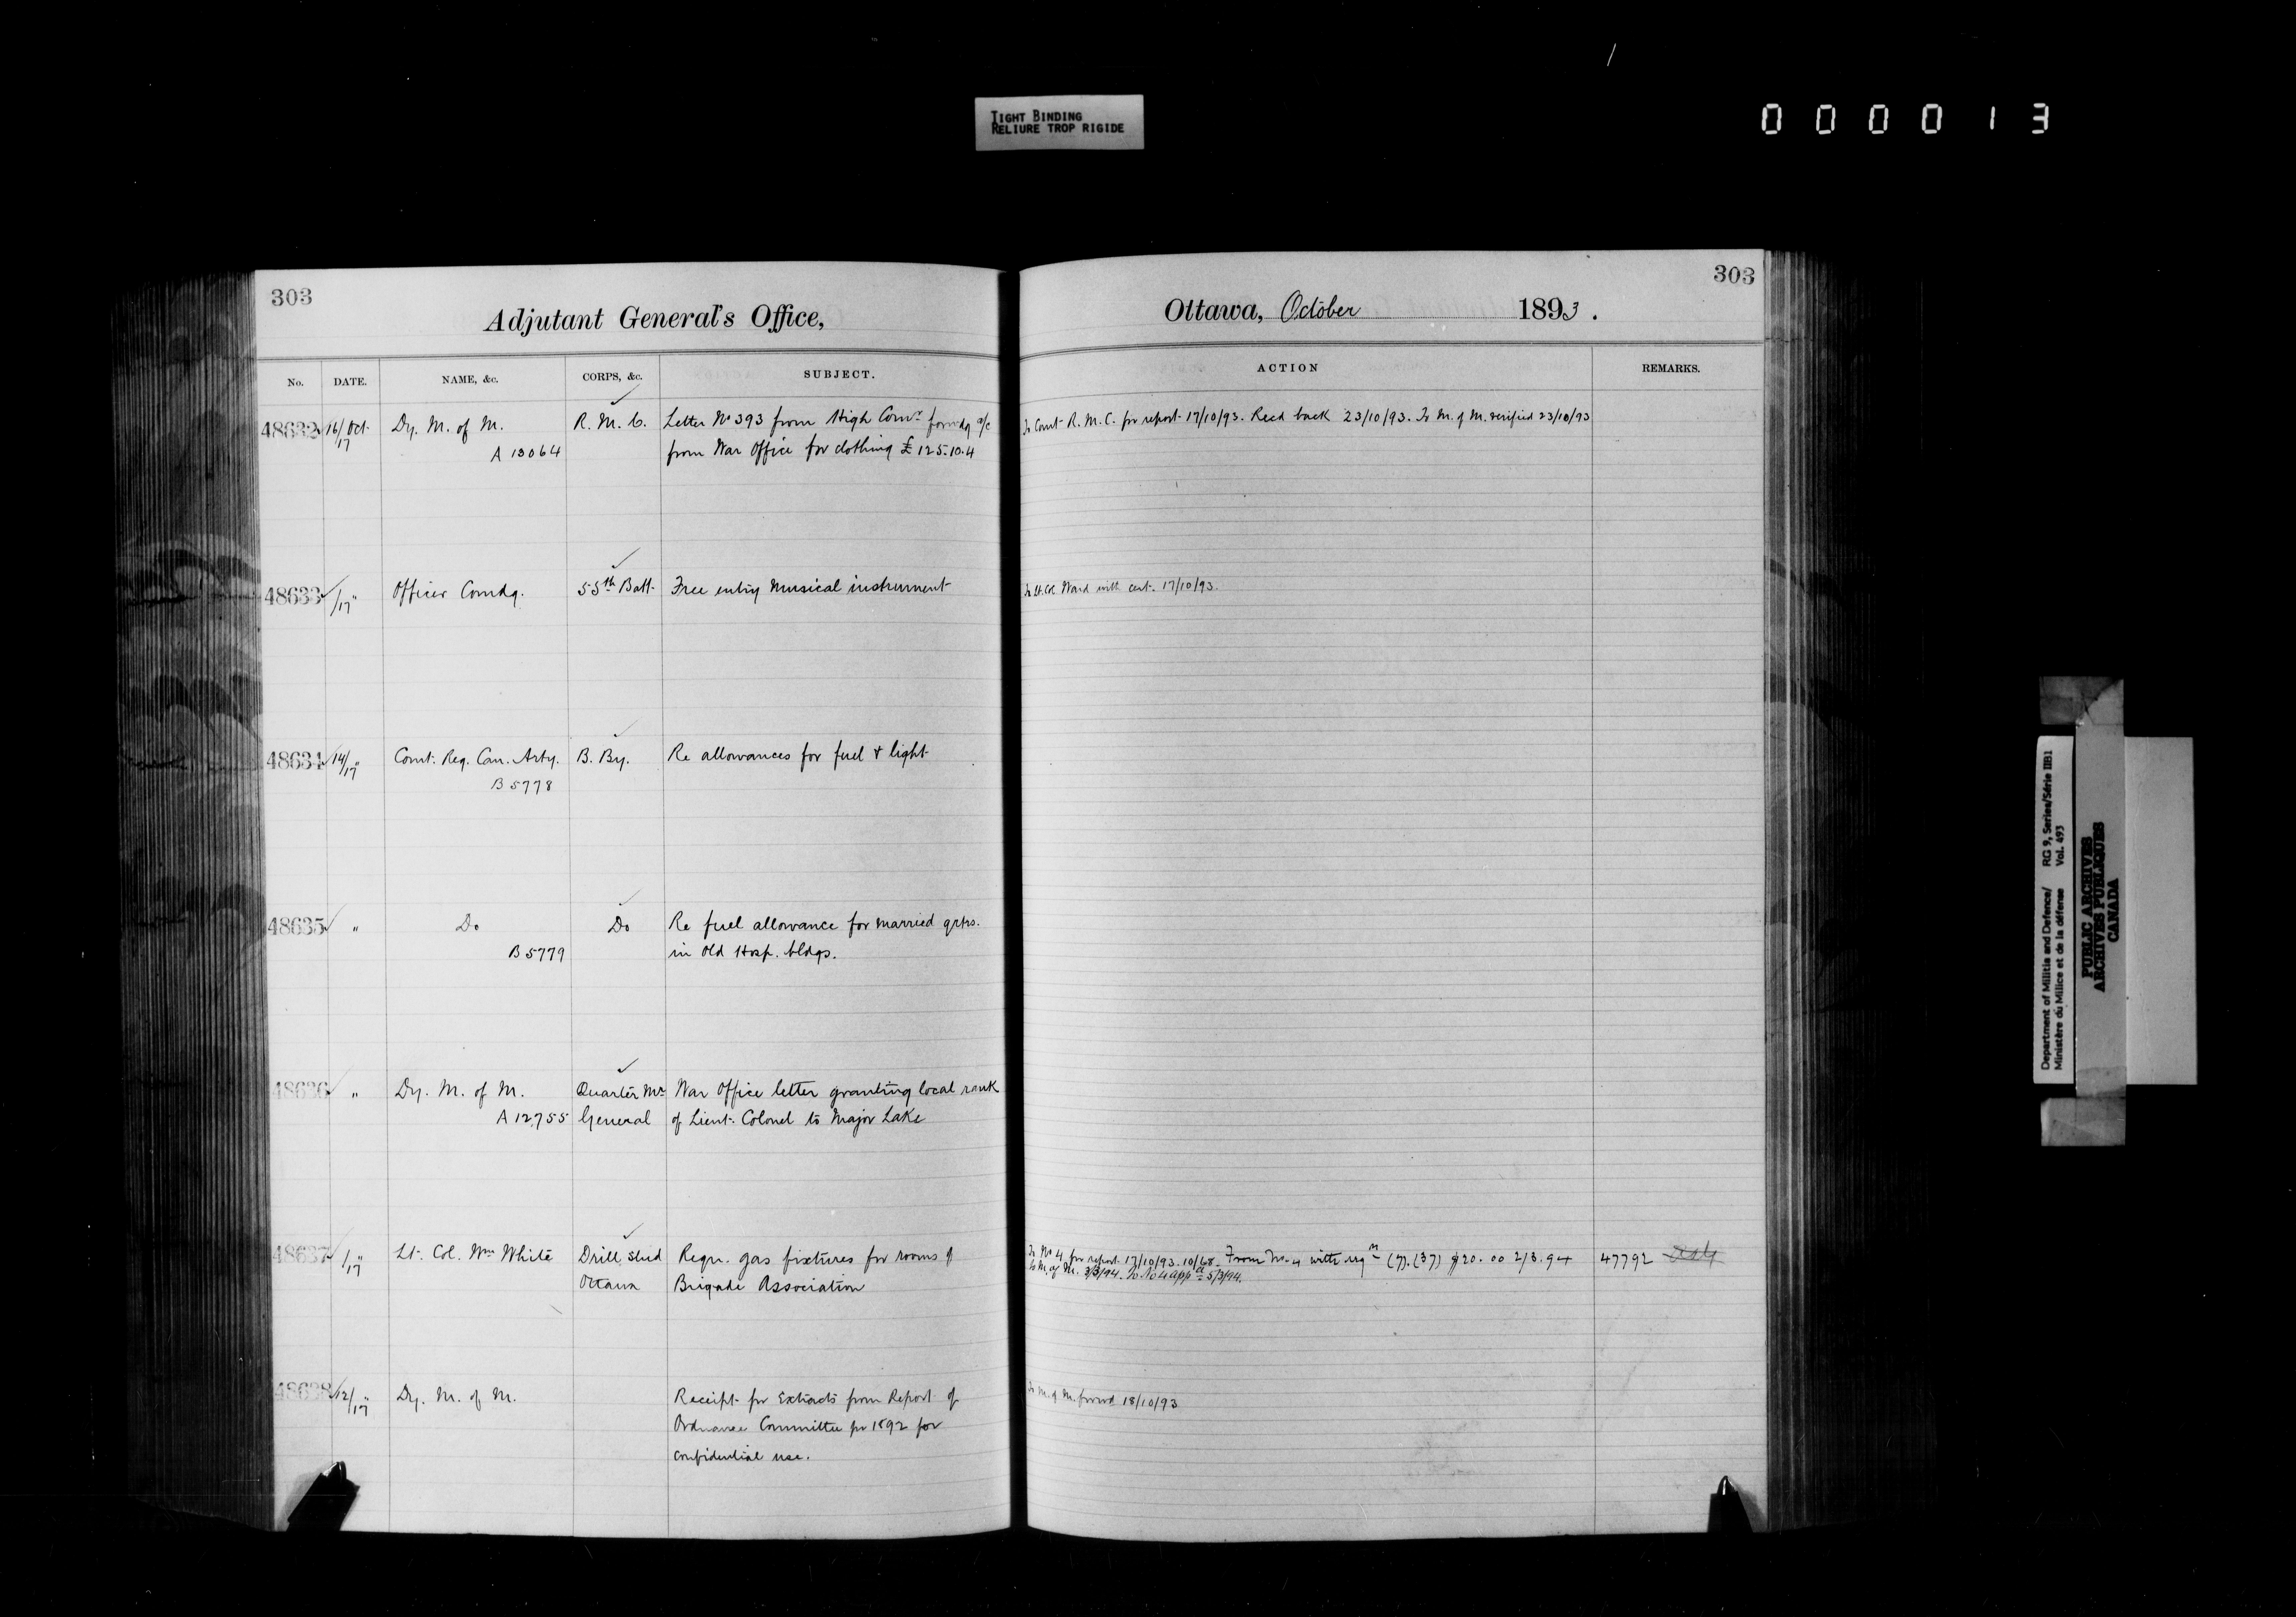 TIGHT BINDING
RELIURE TROP RIGIDE
000013
303
Adjutant General's Office,
No. DATE. NAME, &c. CORPS, &c. SUBJECT.
48632 16/17 Oct. Dy. M. of M. R. M. C. Letter No 393 from High Comr. forwdg a/c
A 13064 from War Office for clothing £125.10.4
48633 /17 " Officer Comdg. 55th Batt. Free entry Musical instrument
48634 14/17 " Comt. Reg. Can. Arty. B. By. Re allowances for fuel & light
B 5778
48635 " Do Do Re fuel allowance for married qrtrs.
B 5779 in Old Hosp. bldgs.
48636 " Dy. M. of M. Quarter Mr. War Office letter granting local rank
A 12755 General of Lieut. Colonel to Major Lake
48637 /17 " Lt. Col. Wm White Drill Shed Reqn. gas fixtures for rooms of
Ottawa Brigade Association
48638 12/17 " Dy. M. of M. Receipt for Extracts from Report of
Ordnance Committee for 1892 for
confidential use.
303
Ottawa, October 1893.
ACTION REMARKS.
To Comt R. M. C. for report 17/10/93. Recd back 23/10/93. To M. of M. verified 23/10/93
To Lt. Col. Ward with cert. 17/10/93.
To No 4 for report 17/10/93. 10/68. From No. 4 with reqn (7). (37) $20.00 2/3.94 47792
To M. of M. 3/3/94. To No 4 appd 5/3/94.
To M. of M. forwd 18/10/93
Department of Militia and Defence/ RG 9, Series/Série IIB1
Ministère du Milice et de la défense Vol. 493
PUBLIC ARCHIVES
ARCHIVES PUBLIQUES
CANADA